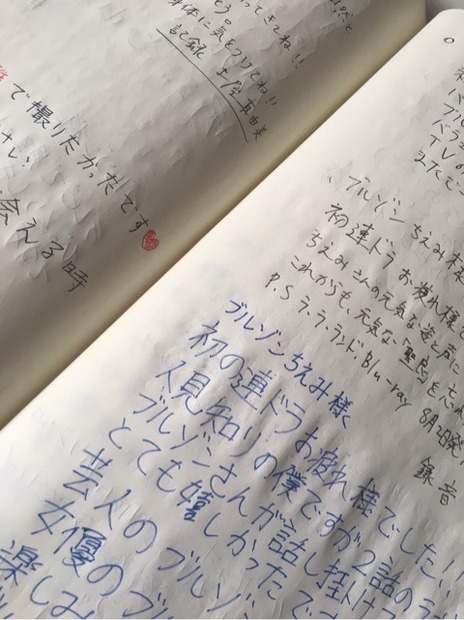 身体に気をつけてね!!
記録 土屋 真由美
で撮りたかったです
会える時
ブルゾン ちえみ
初連ドラ お疲れ様で
ちえみさんの元気な姿と声に
これからも、元気な
P.S ラ・ラ・ランド Blu-ray 8月2日発
録音
ブルゾンちえみ様
初の連ドラお疲れ様でした!!
人見知りの僕ですが2話の
ブルゾンさんが話し掛け
とても嬉しかったで
芸人のブルゾン
女優のブル
楽しみ